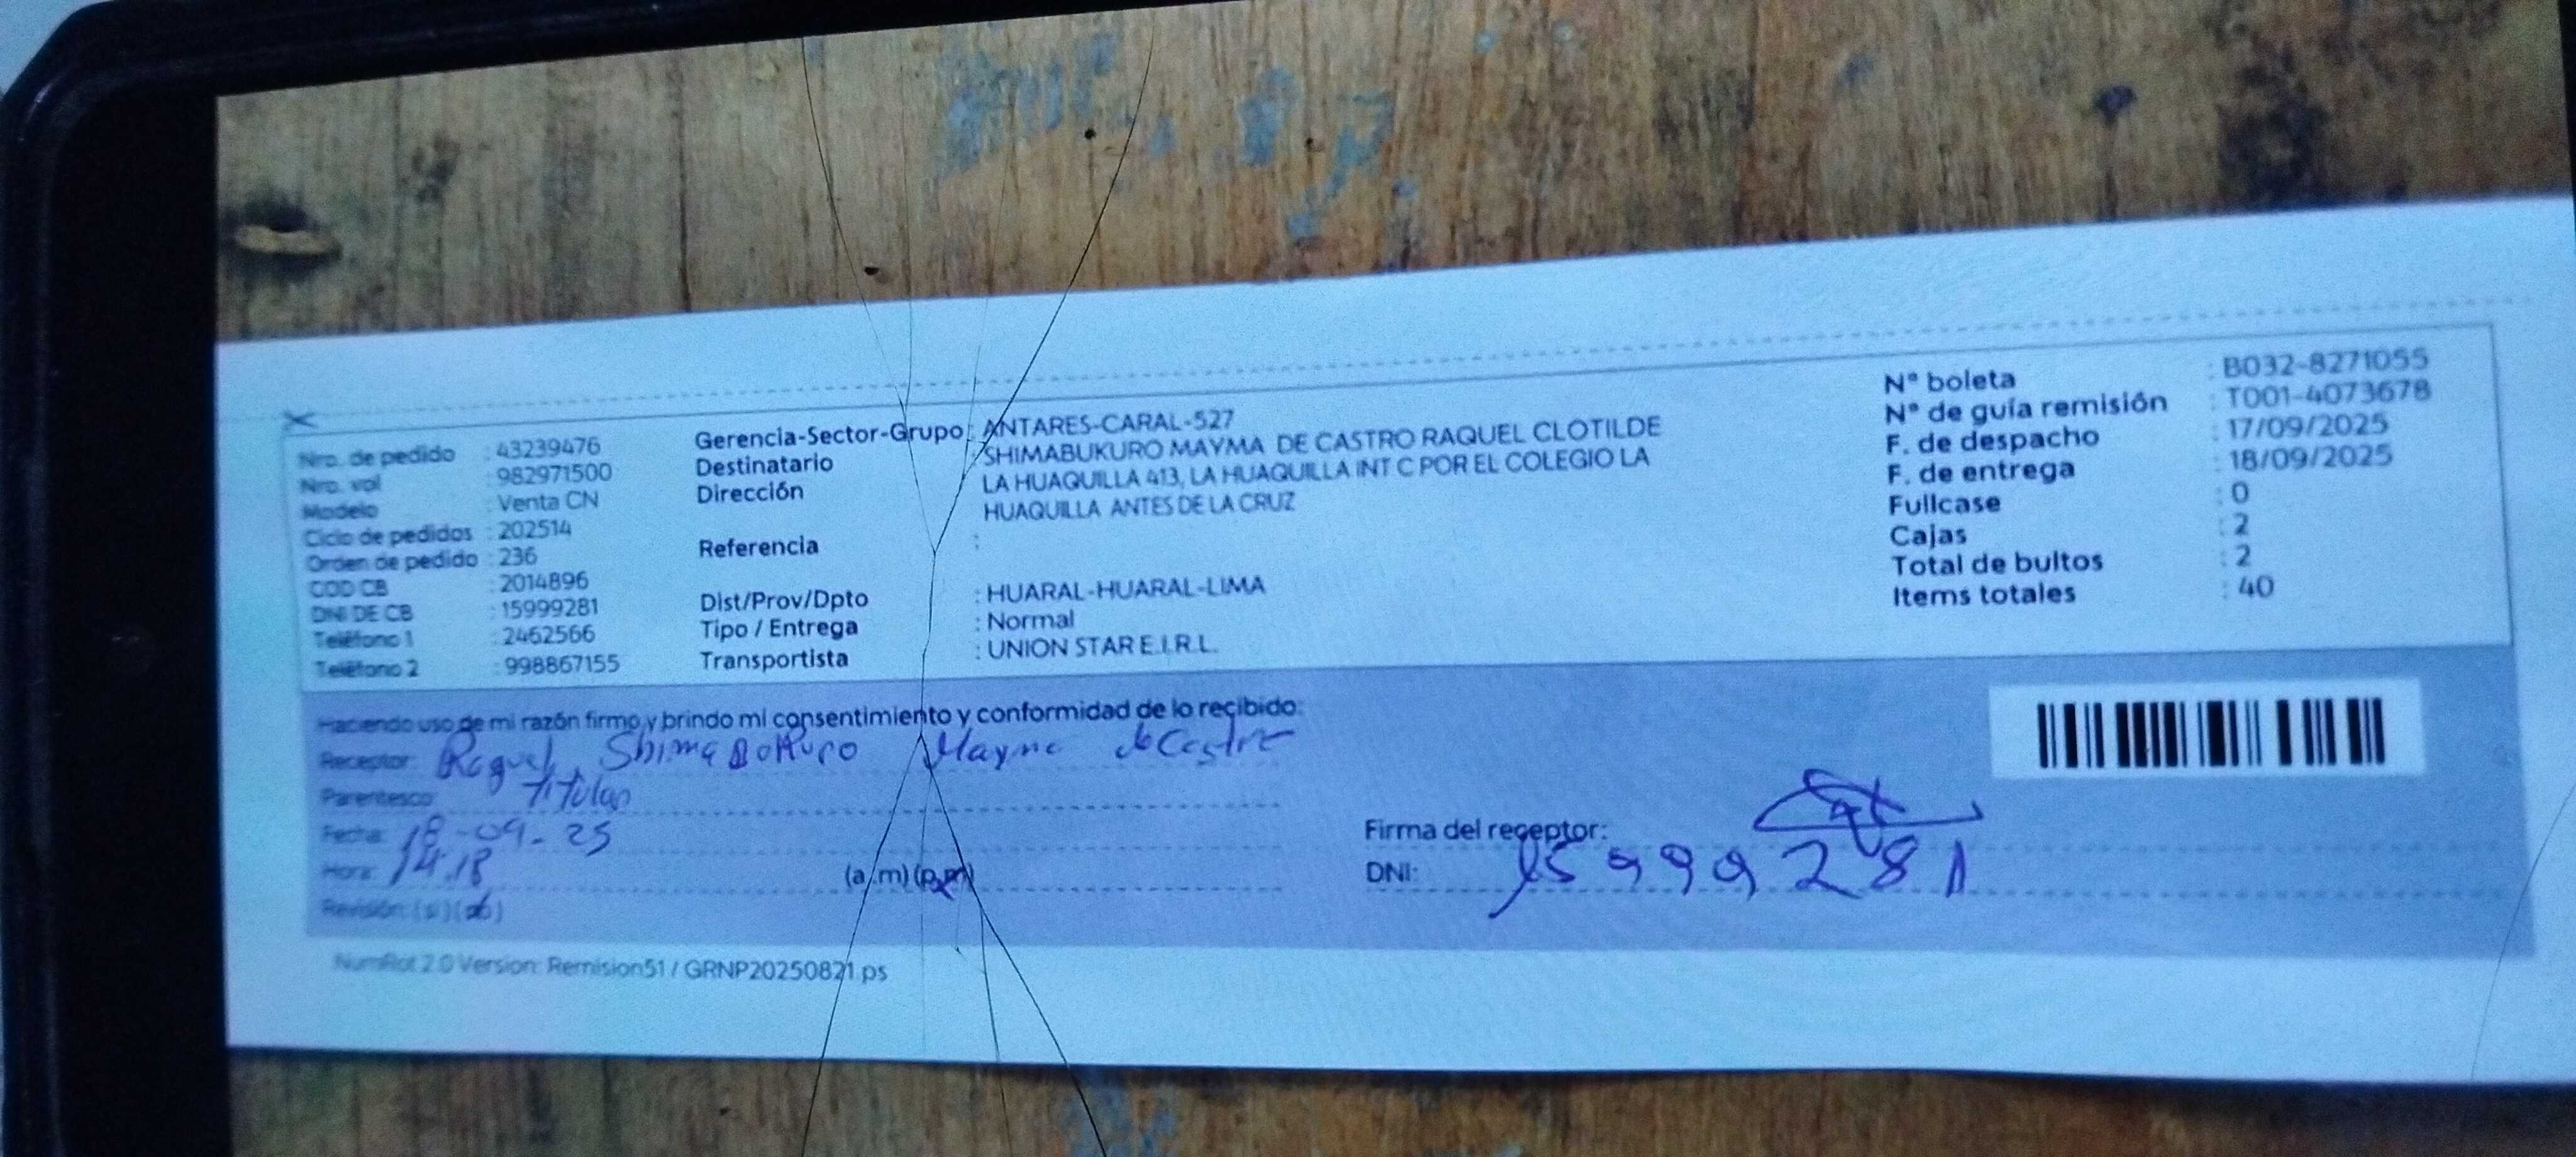 Nro. de pedido : 43239476
Nro. vol : 982971500
Modelo : Venta CN
Ciclo de pedidos : 202514
Orden de pedido : 236
COD CB : 2014896
DNI DE CB : 15999281
Teléfono 1 : 2462566
Teléfono 2 : 998867155
Gerencia-Sector-Grupo : ANTARES-CARAL-527
Destinatario : SHIMABUKURO MAYMA DE CASTRO RAQUEL CLOTILDE
Dirección : LA HUAQUILLA 413, LA HUAQUILLA INT C POR EL COLEGIO LA
HUAQUILLA ANTES DE LA CRUZ
Referencia :
Dist/Prov/Dpto : HUARAL-HUARAL-LIMA
Tipo / Entrega : Normal
Transportista : UNION STAR E.I.R.L.
N° boleta : B032-8271055
N° de guía remisión : T001-4073678
F. de despacho : 17/09/2025
F. de entrega : 18/09/2025
Fullcase : 0
Cajas : 2
Total de bultos : 2
Items totales : 40
Haciendo uso de mi razón firmo y brindo mi consentimiento y conformidad de lo recibido:
Receptor: Raquel Shimabokuro Mayma de Castro
Parentesco: Titular
Fecha: 18-09-25
Hora: 14.18 (a.m) (p.m)
Revisión: (si) (no)
Firma del receptor:
DNI: 15999281
NumRot 2.0 Version: Remision51 / GRNP20250821.ps